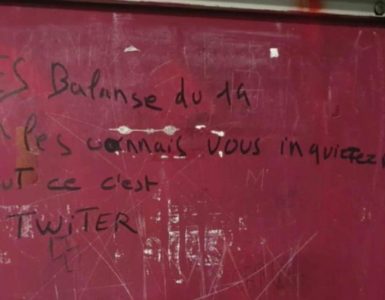 ES Balanse du 19
les connais vous inquietez
UT ce c'est
TWiTER